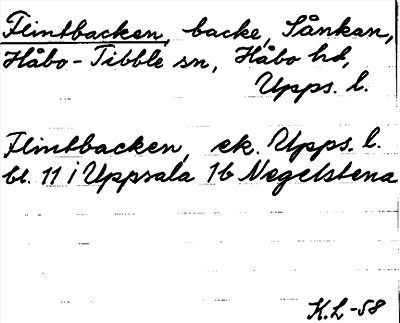 Flintbacken, backe, Sånkan,
Håbo-Tibble sn, Håbo hd,
Upps. l.
Flintbacken, ek. Upps. l.
bl. 11 i Uppsala 1b Negelstena
K.L-58